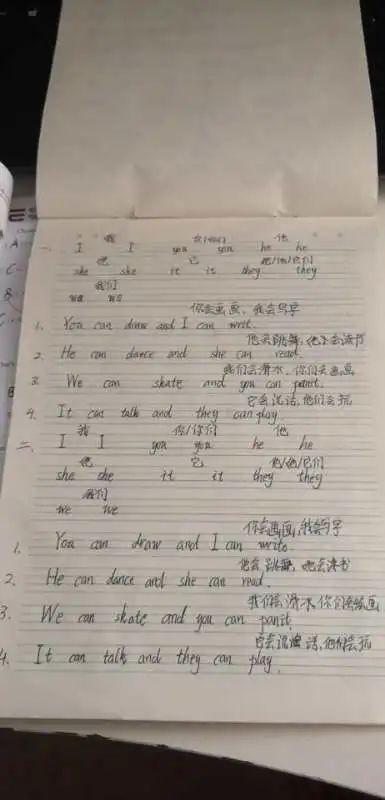 我 你/你们 他
一、 I I you you he he
她 它 他/她/它们
she she it it they they
我们
we we
你会画画,我会写字
1. You can draw and I can writ.
他会跳舞,她会读书
2. He can dance and she can read.
我们会滑冰,你们会画画
3. We can skate and you can panit.
它会说话,他们会玩
4. It can talk and they can play.
我 你/你们 他
二、 I I you you he he
她 它 他/她/它们
she she it it they they
我们
we we
你会画画,我会写字
1. You can draw and I can write.
他会跳舞,她会读书
2. He can dance and she can read.
我们会滑冰,你们会绘画
3. We can skate and you can panit.
它会说话,他们会玩
4. It can talk and they can play.